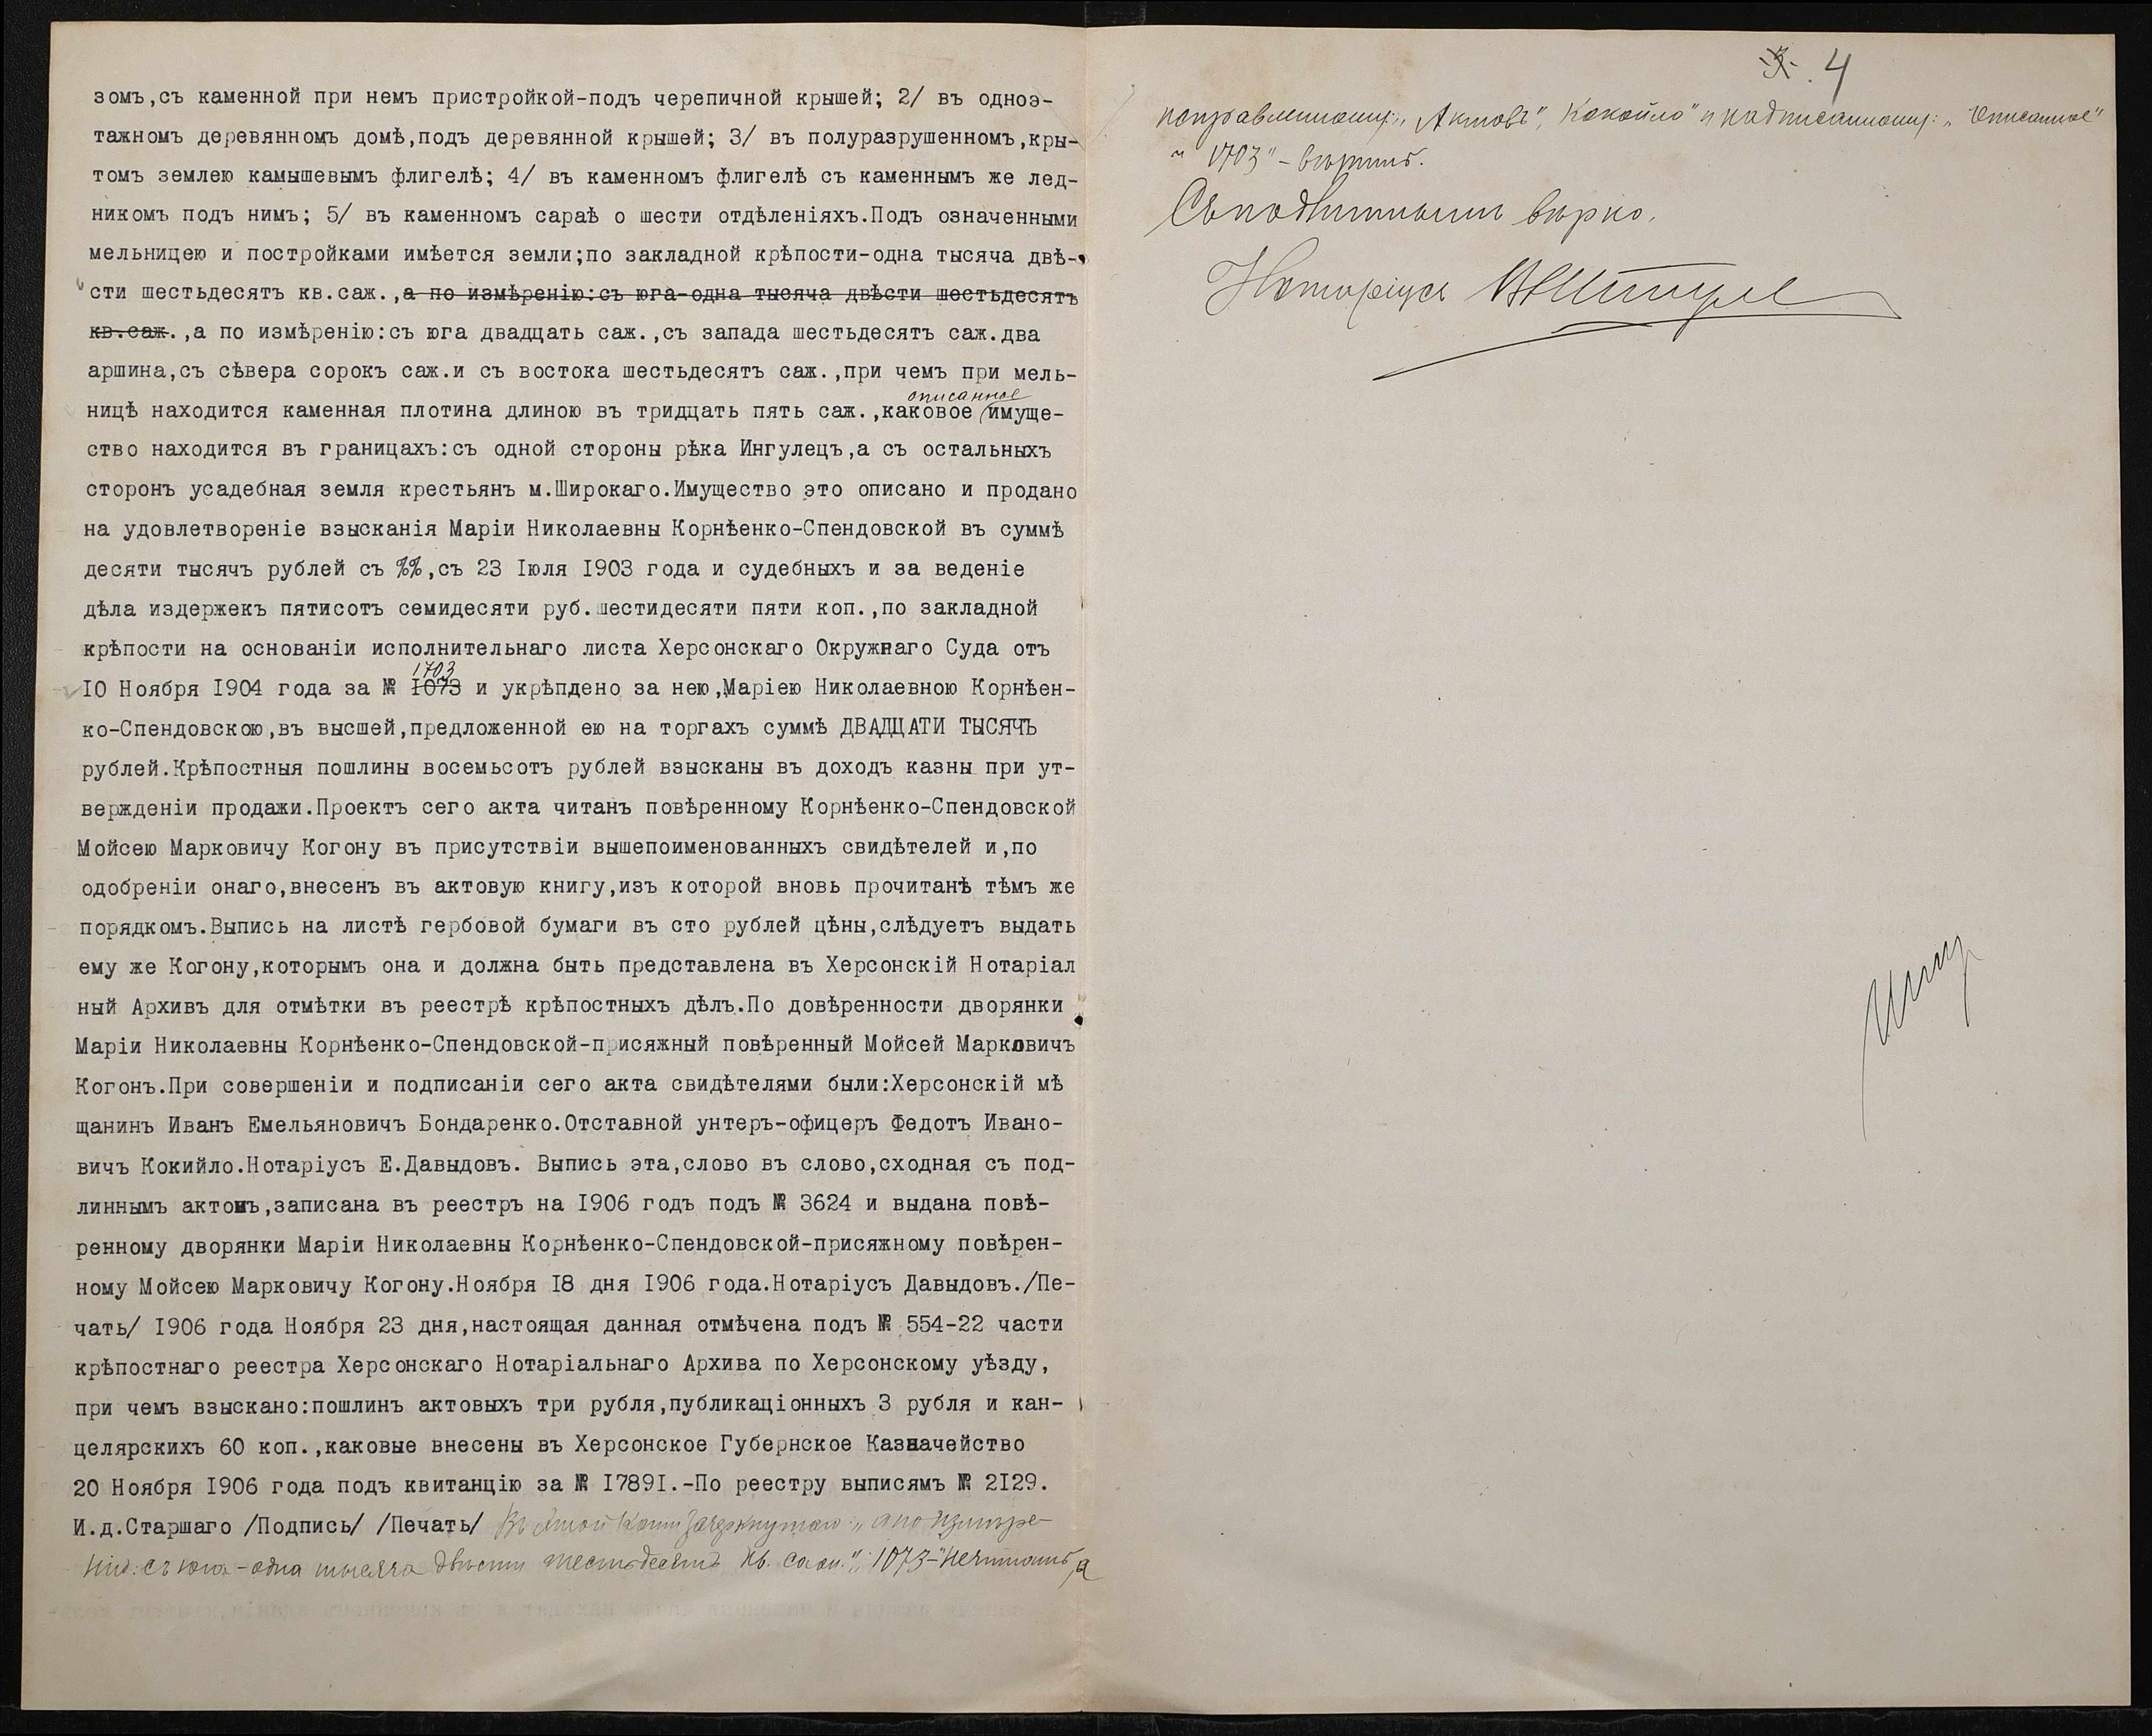 зомъ,съ каменной при немъ пристройкой-подъ черепичной крышей; 2/ въ одноэ-
тажномъ деревянномъ домѣ,подъ деревянной крышей; 3/ въ полуразрушенномъ,кры-
томъ землею камышевымъ флигелѣ; 4/ въ каменномъ флигелѣ съ каменнымъ же лед-
никомъ подъ нимъ; 5/ въ каменномъ сараѣ о шести отдѣленіяхъ.Подъ означенными
мельницею и постройками имѣется земли;по закладной крѣпости-одна тысяча двѣ-
сти шестьдесятъ кв.саж.,а по измѣренію:съ юга-одна тысяча двѣсти шестьдесятъ
кв.саж.,а по измѣренію:съ юга двадцать саж.,съ запада шестьдесятъ саж.два
аршина,съ сѣвера сорокъ саж.и съ востока шестьдесятъ саж.,при чемъ при мель-
описанное
ницѣ находится каменная плотина длиною въ тридцать пять саж.,каковое имуще-
ство находится въ границахъ:съ одной стороны рѣка Ингулецъ,а съ остальныхъ
сторонъ усадебная земля крестьянъ м.Широкаго.Имущество это описано и продано
на удовлетвореніе взысканія Маріи Николаевны Корнѣенко-Спендовской въ суммѣ
десяти тысячъ рублей съ %%,съ 23 Іюля 1903 года и судебныхъ и за веденіе
дѣла издержекъ пятисотъ семидесяти руб.шестидесяти пяти коп.,по закладной
крѣпости на основаніи исполнительнаго листа Херсонскаго Окружнаго Суда отъ
1703
10 Ноября 1904 года за № 1073 и укрѣплено за нею,Маріею Николаевною Корнѣен-
ко-Спендовскою,въ высшей,предложенной ею на торгахъ суммѣ ДВАДЦАТИ ТЫСЯЧЪ
рублей.Крѣпостныя пошлины восемьсотъ рублей взысканы въ доходъ казны при ут-
вержденіи продажи.Проектъ сего акта читанъ повѣренному Корнѣенко-Спендовской
Мойсею Марковичу Когону въ присутствіи вышепоименованныхъ свидѣтелей и,по
одобреніи онаго,внесенъ въ актовую книгу,изъ которой вновь прочитанѣ тѣмъ же
порядкомъ.Выпись на листѣ гербовой бумаги въ сто рублей цѣны,слѣдуетъ выдать
ему же Когону,которымъ она и должна быть представлена въ Херсонскій Нотаріал
ный Архивъ для отмѣтки въ реестрѣ крѣпостныхъ дѣлъ.По довѣренности дворянки
Маріи Николаевны Корнѣенко-Спендовской-присяжный повѣренный Мойсей Марковичъ
Когонъ.При совершеніи и подписаніи сего акта свидѣтелями были:Херсонскій мѣ
щанинъ Иванъ Емельяновичъ Бондаренко.Отставной унтеръ-офицеръ Федотъ Ивано-
вичъ Кокийло.Нотаріусъ Е.Давыдовъ. Выпись эта,слово въ слово,сходная съ под-
линнымъ актомъ,записана въ реестръ на 1906 годъ подъ № 3624 и выдана повѣ-
ренному дворянки Маріи Николаевны Корнѣенко-Спендовской-присяжному повѣрен-
ному Мойсею Марковичу Когону.Ноября 18 дня 1906 года.Нотаріусъ Давыдовъ./Пе-
чать/ 1906 года Ноября 23 дня,настоящая данная отмѣчена подъ № 554-22 части
крѣпостнаго реестра Херсонскаго Нотаріальнаго Архива по Херсонскому уѣзду,
при чемъ взыскано:пошлинъ актовыхъ три рубля,публикаціонныхъ 3 рубля и кан-
целярскихъ 60 коп.,каковые внесены въ Херсонское Губернское Казначейство
20 Ноября 1906 года подъ квитанцію за № 17891.-По реестру выписямъ № 2129.
И.д.Старшаго /Подпись/ /Печать/ Въ этой копіи зачеркнутое: „а по измѣре-
нію: съ юга-одна тысяча двѣсти шестьдесятъ кв. саж.", 1073-"не читать, а
3. 4
поправленному: „Актовъ", Кокойло" и надписанному: „Описанное"
и 1703" - вѣрить.
Съ подлиннымъ вѣрно.
Нотаріусъ